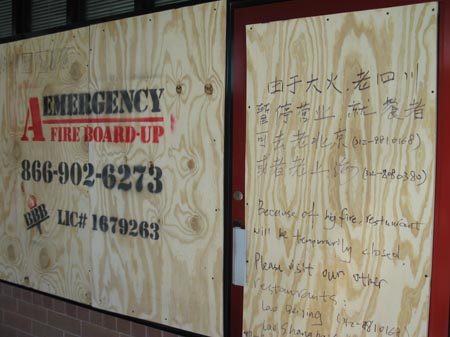 A EMERGENCY
FIRE BOARD-UP
866-902-6273
BBB
LIC# 1679263
由于大火,老四川
暂停营业,就餐者
可去老北京(312-8810168)
或者老上海(312-8080830)
Because of big fire, restaurant
will be temporarily closed.
Please visit our other
restaurants:
Lao Beijing (312-8810168)
Lao Shanghai